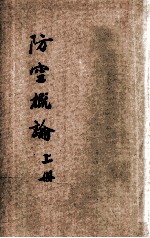 防空概論上册